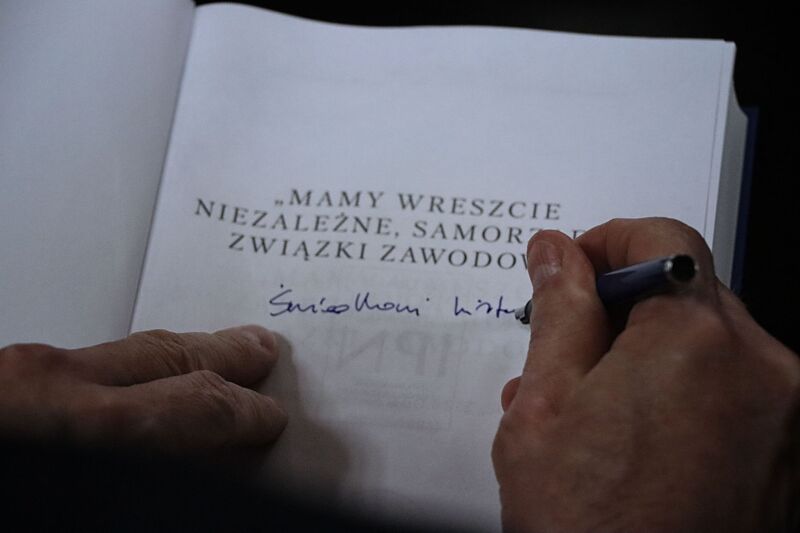 „MAMY WRESZCIE
NIEZALEŻNE, SAMORZ
ZWIĄZKI ZAWODOW
Świadkowi histo
IPN